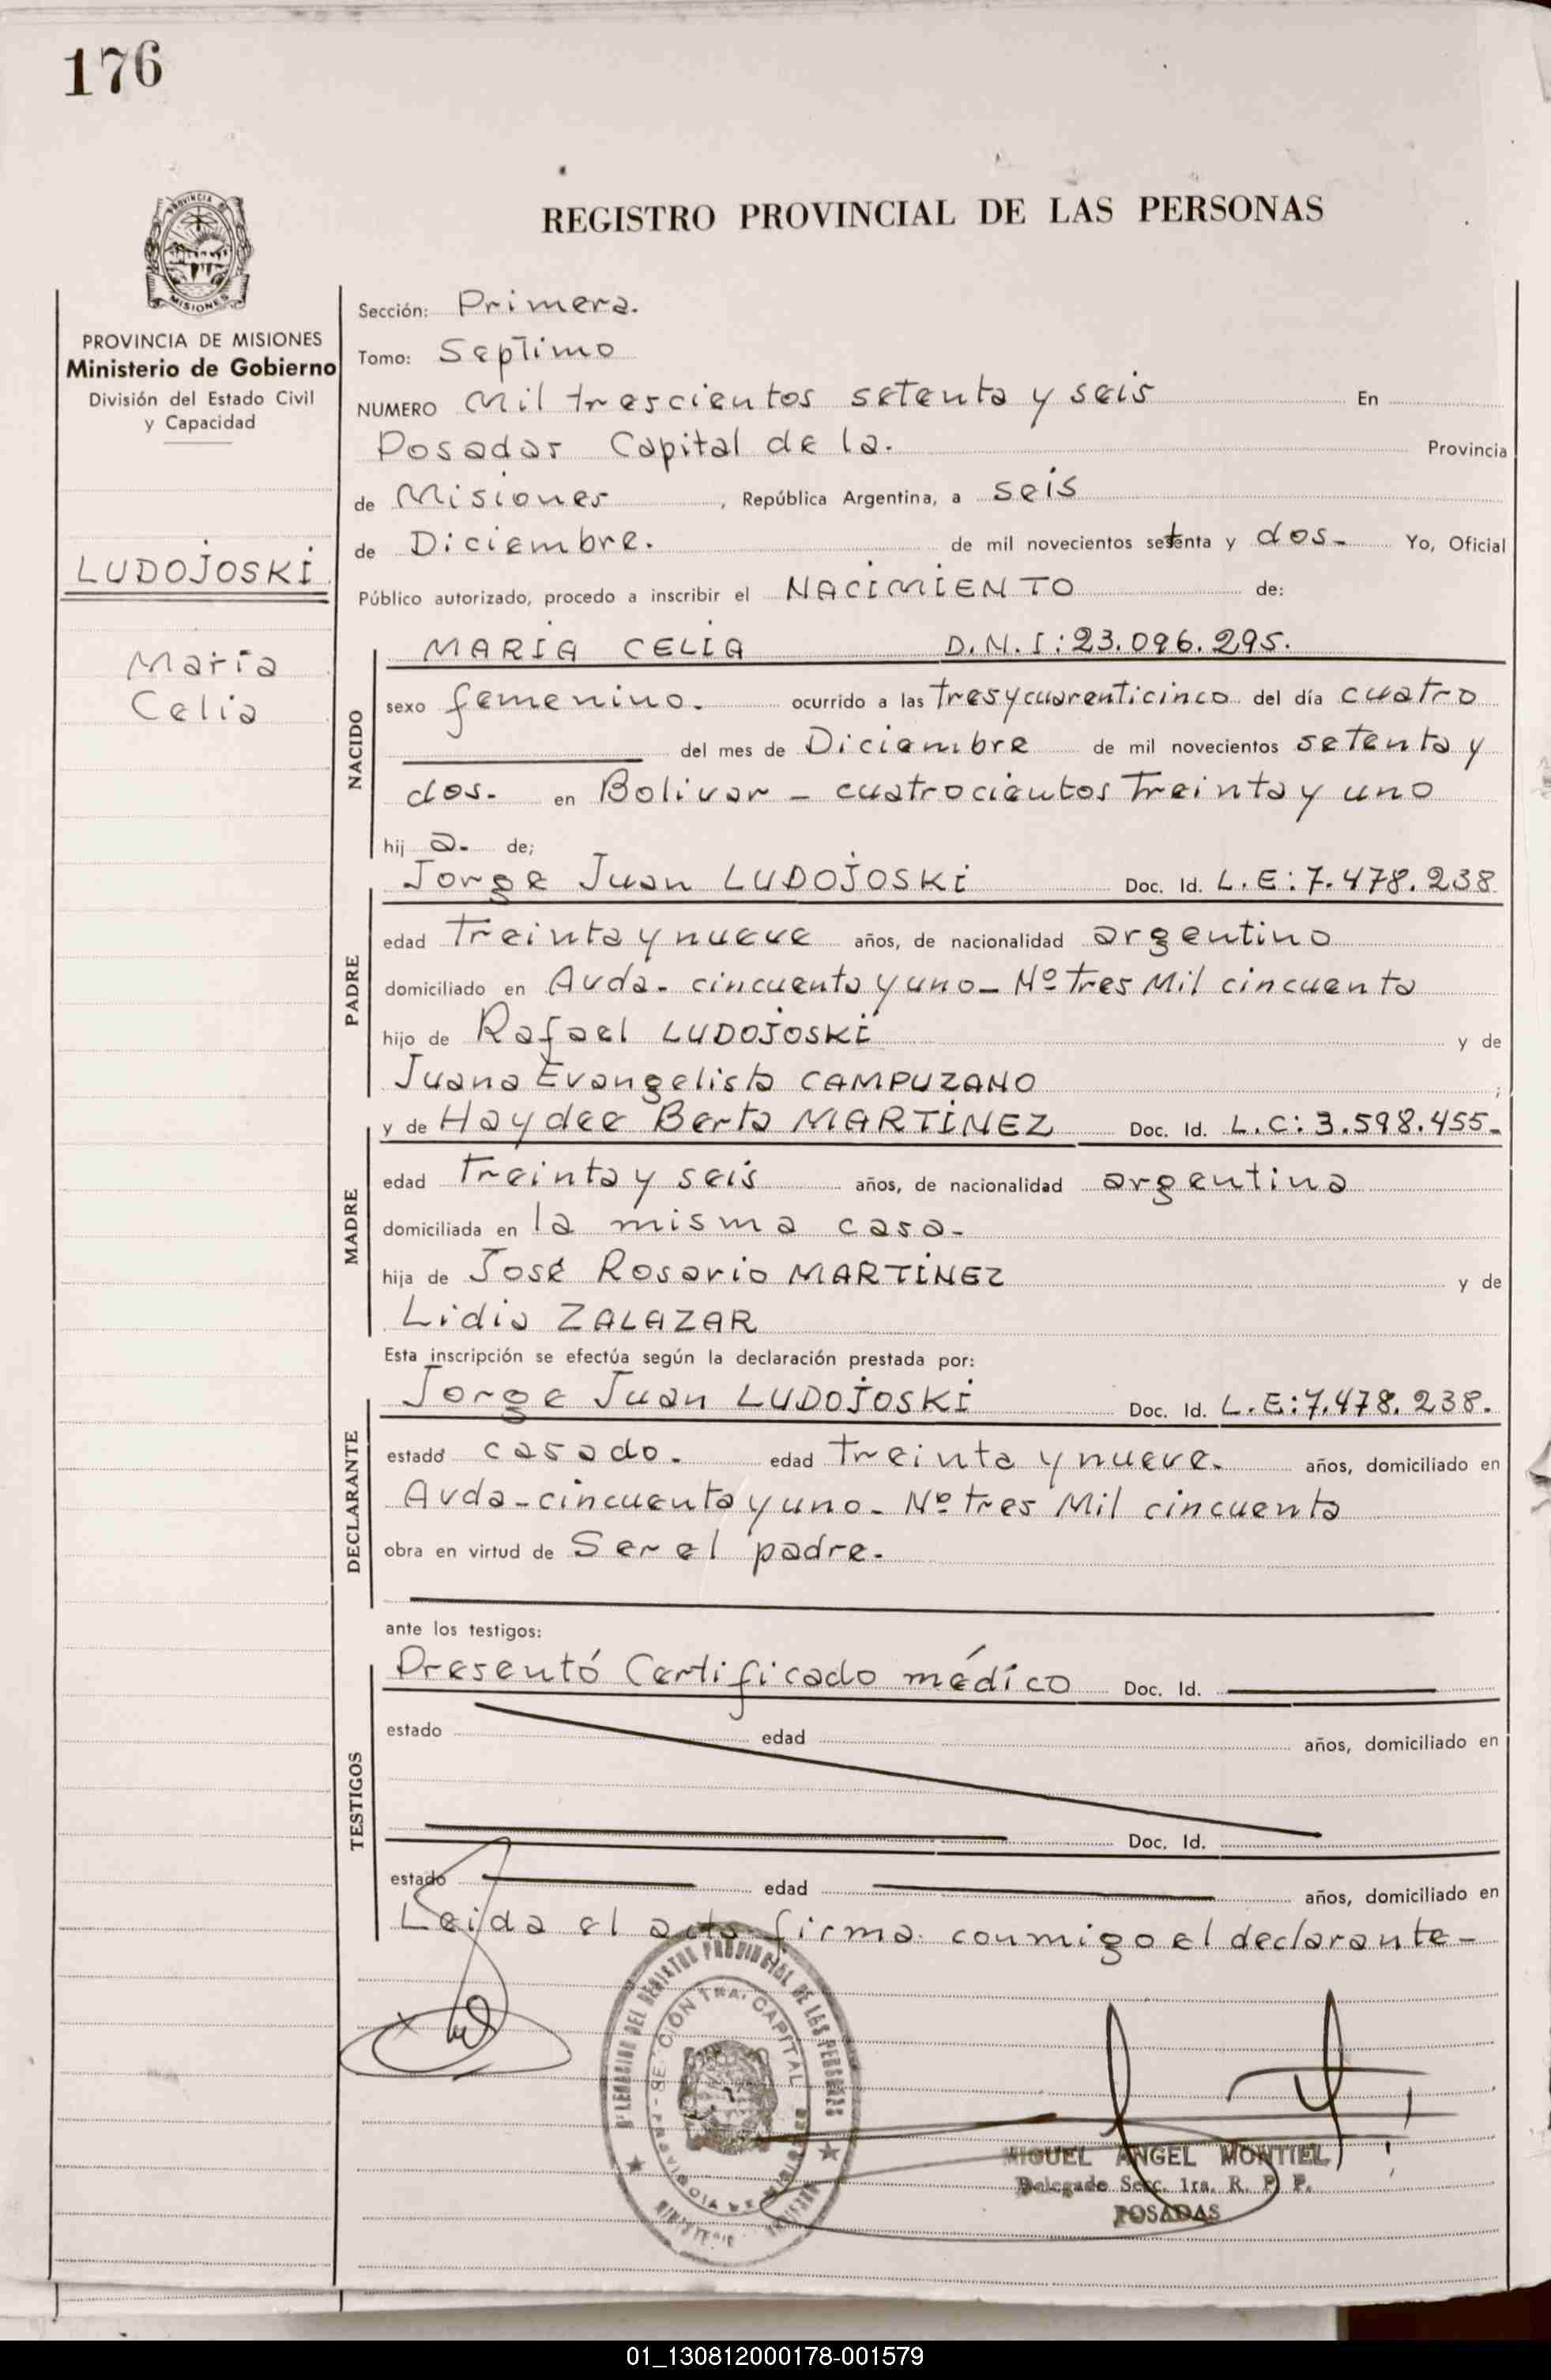 176
REGISTRO PROVINCIAL DE LAS PERSONAS
PROVINCIA DE MISIONES
Ministerio de Gobierno
División del Estado Civil
y Capacidad
LUDOJOSKI
María
Celia
Sección: Primera.
Tomo: Septimo
NUMERO Mil trescientos setenta y seis En
Posadas Capital de la. Provincia
de Misiones, República Argentina, a seis
de Diciembre. de mil novecientos setenta y dos. Yo, Oficial
Público autorizado, procedo a inscribir el NACIMIENTO de:
NACIDO
MARIA CELIA D.N.I: 23.096.295.
sexo femenino. ocurrido a las tresycuarenticinco del día cuatro
del mes de Diciembre de mil novecientos setenta y
dos. en Bolivar - cuatrocientos treinta y uno
hij a. de;
PADRE
Jorge Juan LUDOJOSKI Doc. Id. L.E: 7.478.238
edad treinta y nueve años, de nacionalidad argentino
domiciliado en Avda. cincuenta y uno - Nº tres Mil cincuenta
hijo de Rafael LUDOJOSKI y de
Juana Evangelista CAMPUZANO ;
MADRE
y de Haydee Berta MARTINEZ Doc. Id. L.C: 3.598.455.
edad treinta y seis años, de nacionalidad argentina
domiciliada en la misma casa.
hija de José Rosario MARTINEZ y de
Lidia ZALAZAR
Esta inscripción se efectúa según la declaración prestada por:
DECLARANTE
Jorge Juan LUDOJOSKI Doc. Id. L.E: 7.478.238.
estado casado. edad treinta y nueve. años, domiciliado en
Avda - cincuenta y uno - Nº tres Mil cincuenta
obra en virtud de Ser el padre.
ante los testigos:
TESTIGOS
Presentó Certificado médico Doc. Id.
estado edad años, domiciliado en
Doc. Id.
estado edad años, domiciliado en
Leida el acta firma conmigo el declarante -
DEL REGISTRO PROVINCIAL DE LAS PERSONAS
CAPITAL
MIGUEL ANGEL MONTIEL
Delegado Secc. 1ra. R. P. P.
POSADAS
01_130812000178-001579